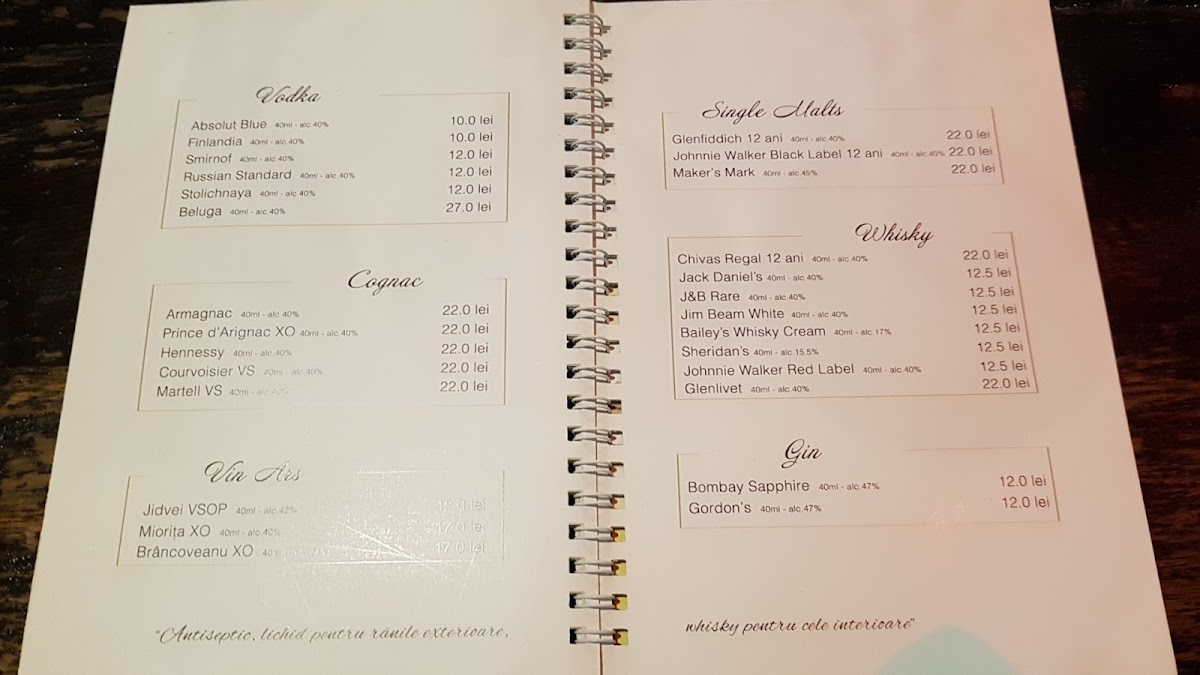 Vodka
Absolut Blue 40ml - alc 40% 10.0 lei
Finlandia 40ml - alc.40% 10.0 lei
Smirnof 40ml - alc.40% 12.0 lei
Russian Standard 40ml - alc 40% 12.0 lei
Stolichnaya 40ml - alc.40% 12.0 lei
Beluga 40ml - alc.40% 27.0 lei
Cognac
Armagnac 40ml - alc 40% 22.0 lei
Prince d'Arignac XO 40ml - alc.40% 22.0 lei
Hennessy 40ml - alc.40% 22.0 lei
Courvoisier VS 40ml - alc.40% 22.0 lei
Martell VS 40ml - alc.40% 22.0 lei
Vin Ars
Jidvei VSOP 40ml - alc.42% lei
Miorița XO 40ml - alc.40% lei
Brâncoveanu XO 17.0 lei
"Antiseptic, lichid pentru rănile exterioare,
Single Malts
Glenfiddich 12 ani 40ml - alc.40% 22.0 lei
Johnnie Walker Black Label 12 ani 40ml - alc.40% 22.0 lei
Maker's Mark 40ml - alc.45% 22.0 lei
Whisky
Chivas Regal 12 ani 40ml - alc.40% 22.0 lei
Jack Daniel's 40ml - alc.40% 12.5 lei
J&B Rare 40ml - alc.40% 12.5 lei
Jim Beam White 40ml - alc.40% 12.5 lei
Bailey's Whisky Cream 40ml - alc.17% 12.5 lei
Sheridan's 40ml - alc.15.5% 12.5 lei
Johnnie Walker Red Label 40ml - alc.40% 12.5 lei
Glenlivet 40ml - alc.40% 22.0 lei
Gin
Bombay Sapphire 40ml - alc.47% 12.0 lei
Gordon's 40ml - alc.47% 12.0 lei
whisky pentru cele interioare"